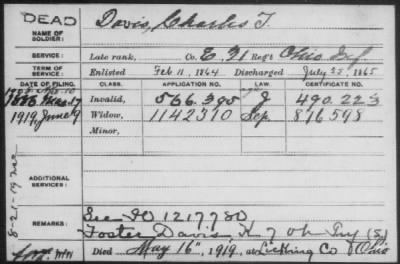 DEAD
NAME OF SOLDIER:
Davis, Charles T.
SERVICE:
Late rank, Co. E. 31 Reg't Ohio Inf
TERM OF SERVICE:
Enlisted Feb 11, 1864 Discharged July 25, 1865
DATE OF FILING. CLASS. APPLICATION NO. LAW. CERTIFICATE NO.
Invalid, 566.395 J 490.223
1919, June 9 Widow, 1142310 Sep. 876598
Minor,
ADDITIONAL SERVICES:
8-21-19
REMARKS:
See IO 1217780
Foster Davis, K 7 Oh Inf (S)
Died May 16", 1919, at Licking Co Ohio